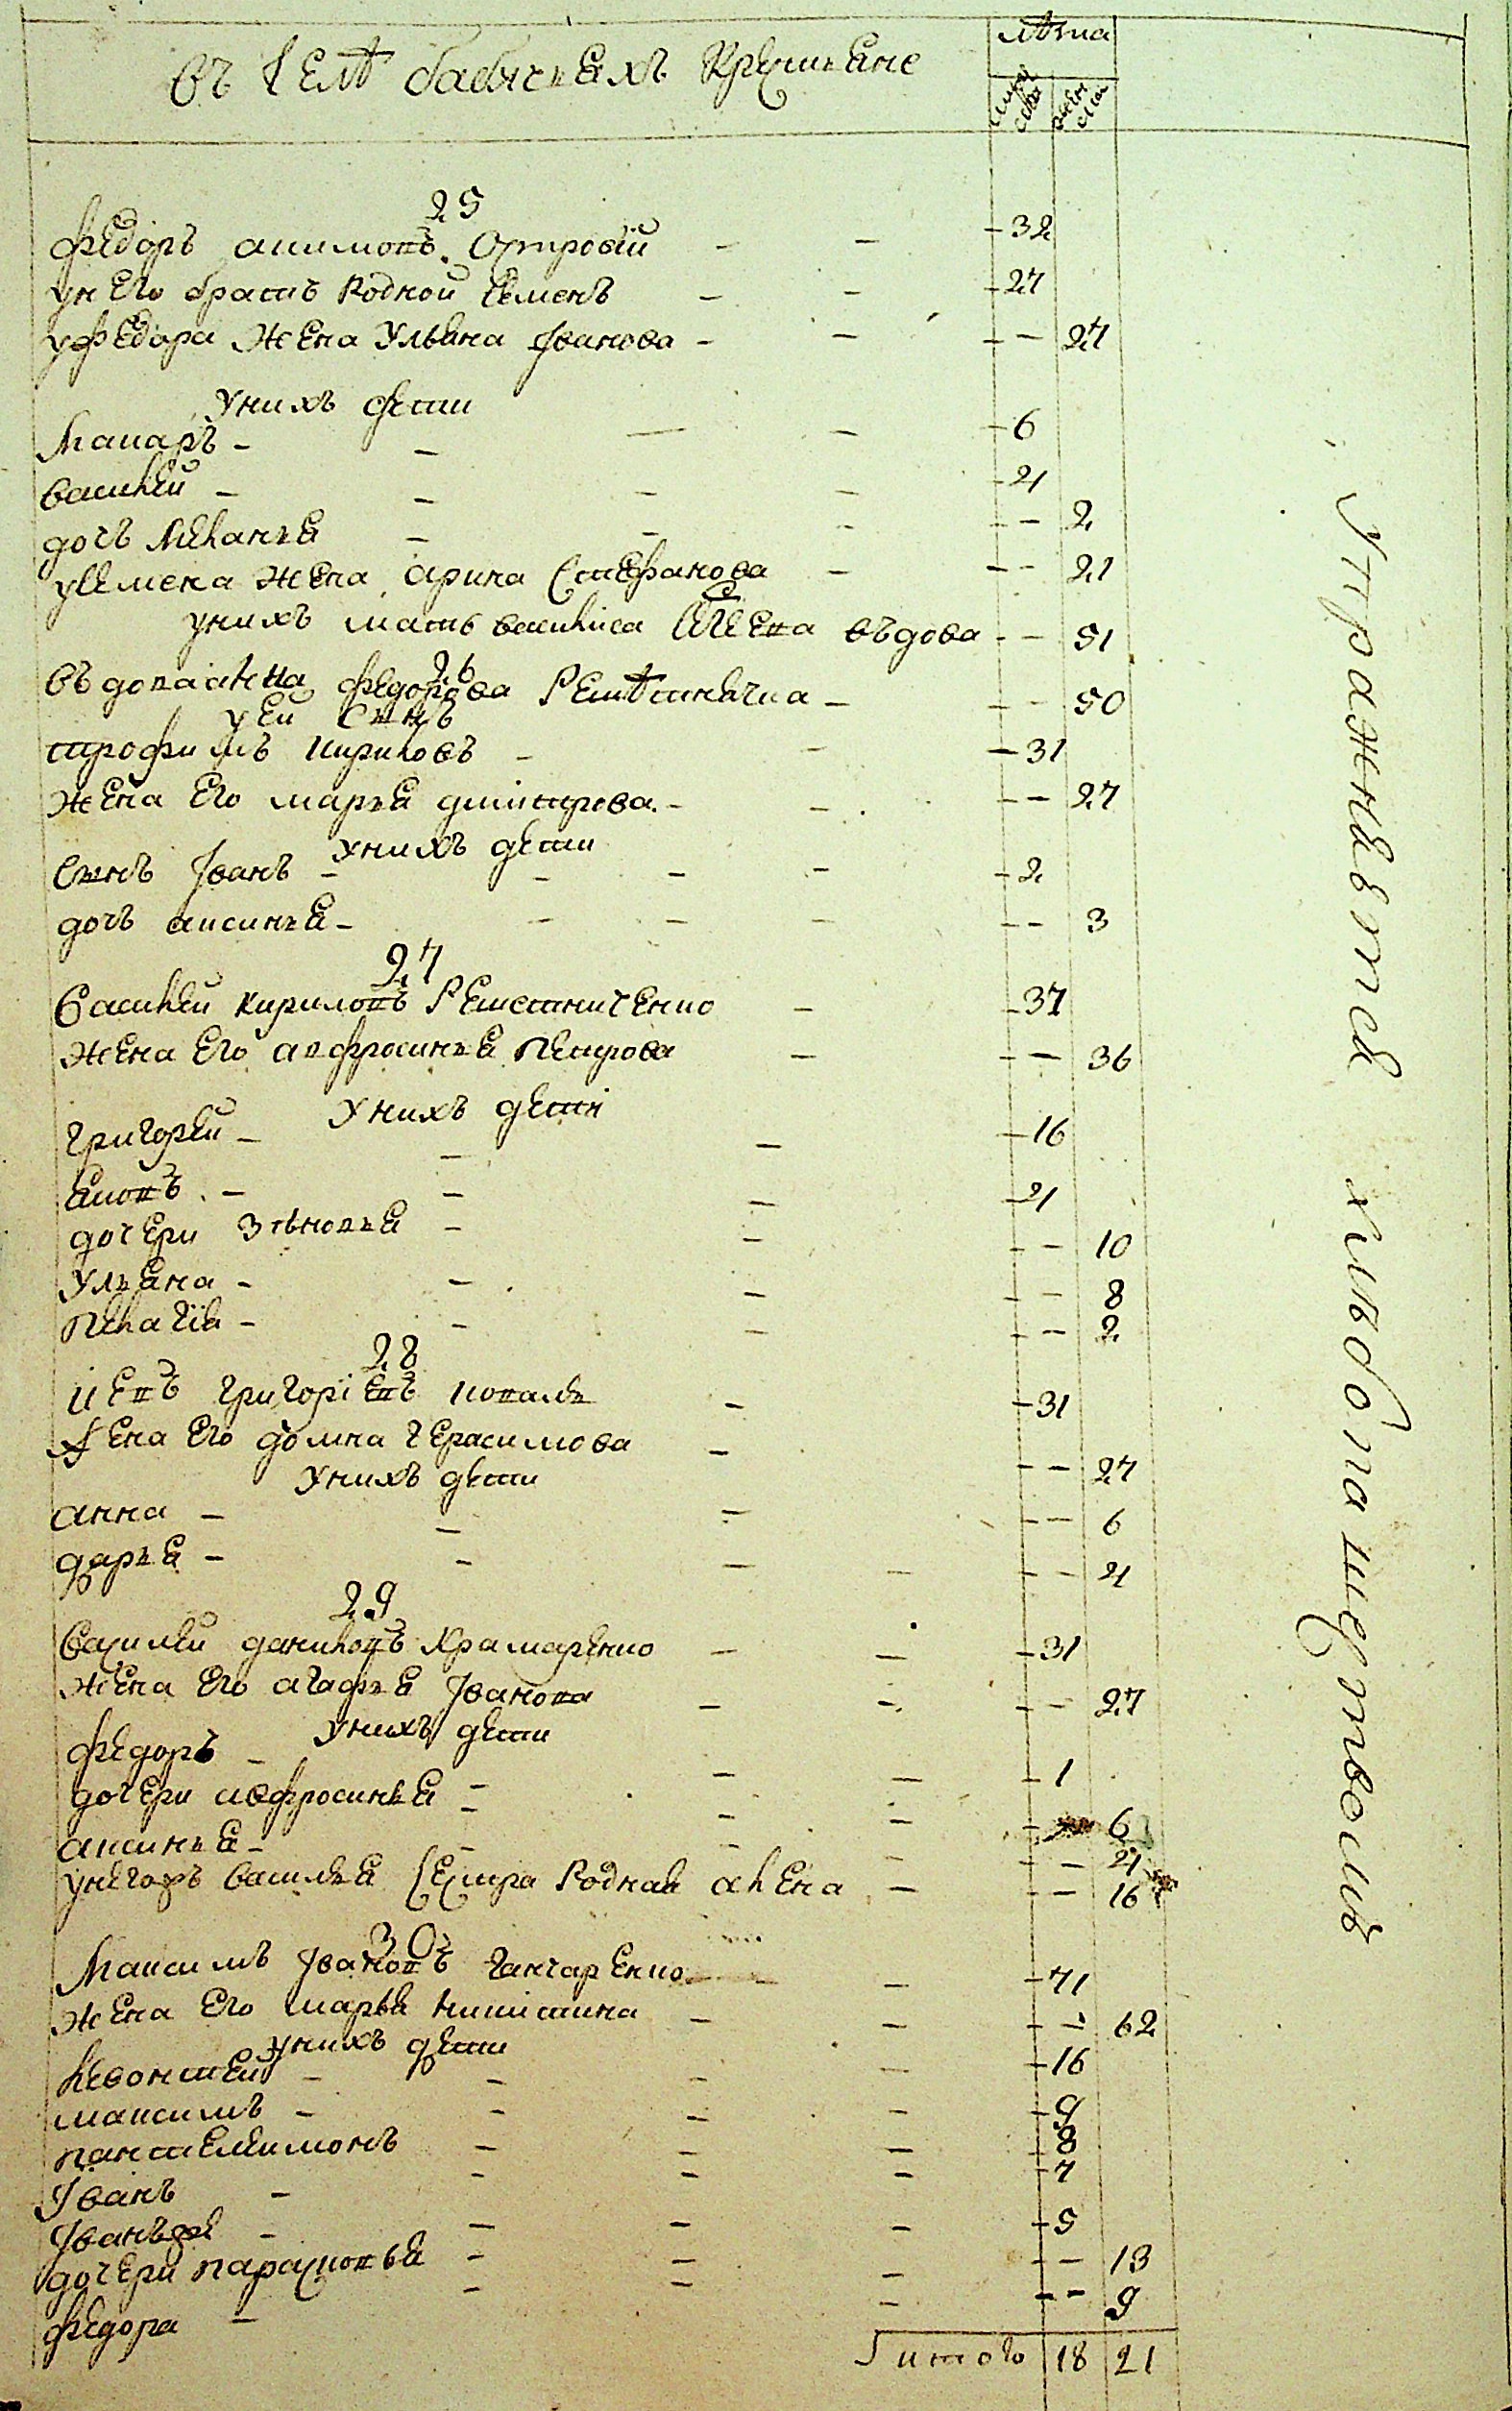 въ селѣ бабичахъ Крестьяне
лѣта
мужеска
женска
25
федоръ акимовъ Острогій - - - 32
унего братъ Родной семенъ - - - 27
уфедора жена Ульяна Іванова - - - - 27
Унихъ дети
Макаръ - - - - - 6
василей - - - - - 4
дочъ Меланья - - - - - 2
усемена жена арина Стефанова - - - 21
унихъ мать василиса вдова - - 51
26
въдова анна федорова Решетникова - - - 50
уей сынъ
трофимъ кириловъ - - - 31
жена его марья дмитрова - - - - 27
унихъ дети
сынъ Іванъ - - - - - 2
дочъ аксинья - - - - - - 3
27
василей кириловъ Решетниченко - - 37
жена его апфросинья петрова - - - 36
Унихъ дети
григорей - - - - 16
яковъ - - - - 4
дочери Зѣновья - - - - 10
Ульяна - - - - - 8
пелагія - - - - - 2
28
григоріевъ коваль - - 31
жена его домна герасимова - - - 27
Унихъ дети
анна - - - - - 6
дарья - - - - - - 4
29
василей даниловъ Крамаренко - - - 31
жена его агафья Іванова - - - - 27
унихъ дети
федоръ - - - - 1
дочери ивфросинья - - - - 6
аксинья - - - - - - 4
василья сестра Родная алена - - - 16
30
Максимъ Івановъ ганчаренко - - - 71
жена его марья никитина - - - - 62
унихъ дети
левонтей - - - - - 16
максимъ - - - - - 9
пантелеимонъ - - - - 8
Іванъ - - - - - 7
Іванъ - - - - - 5
дочери параскопья - - - - - 13
федора - - - - - - 9
Ітого 18 21
Упражняется хлебопашеством